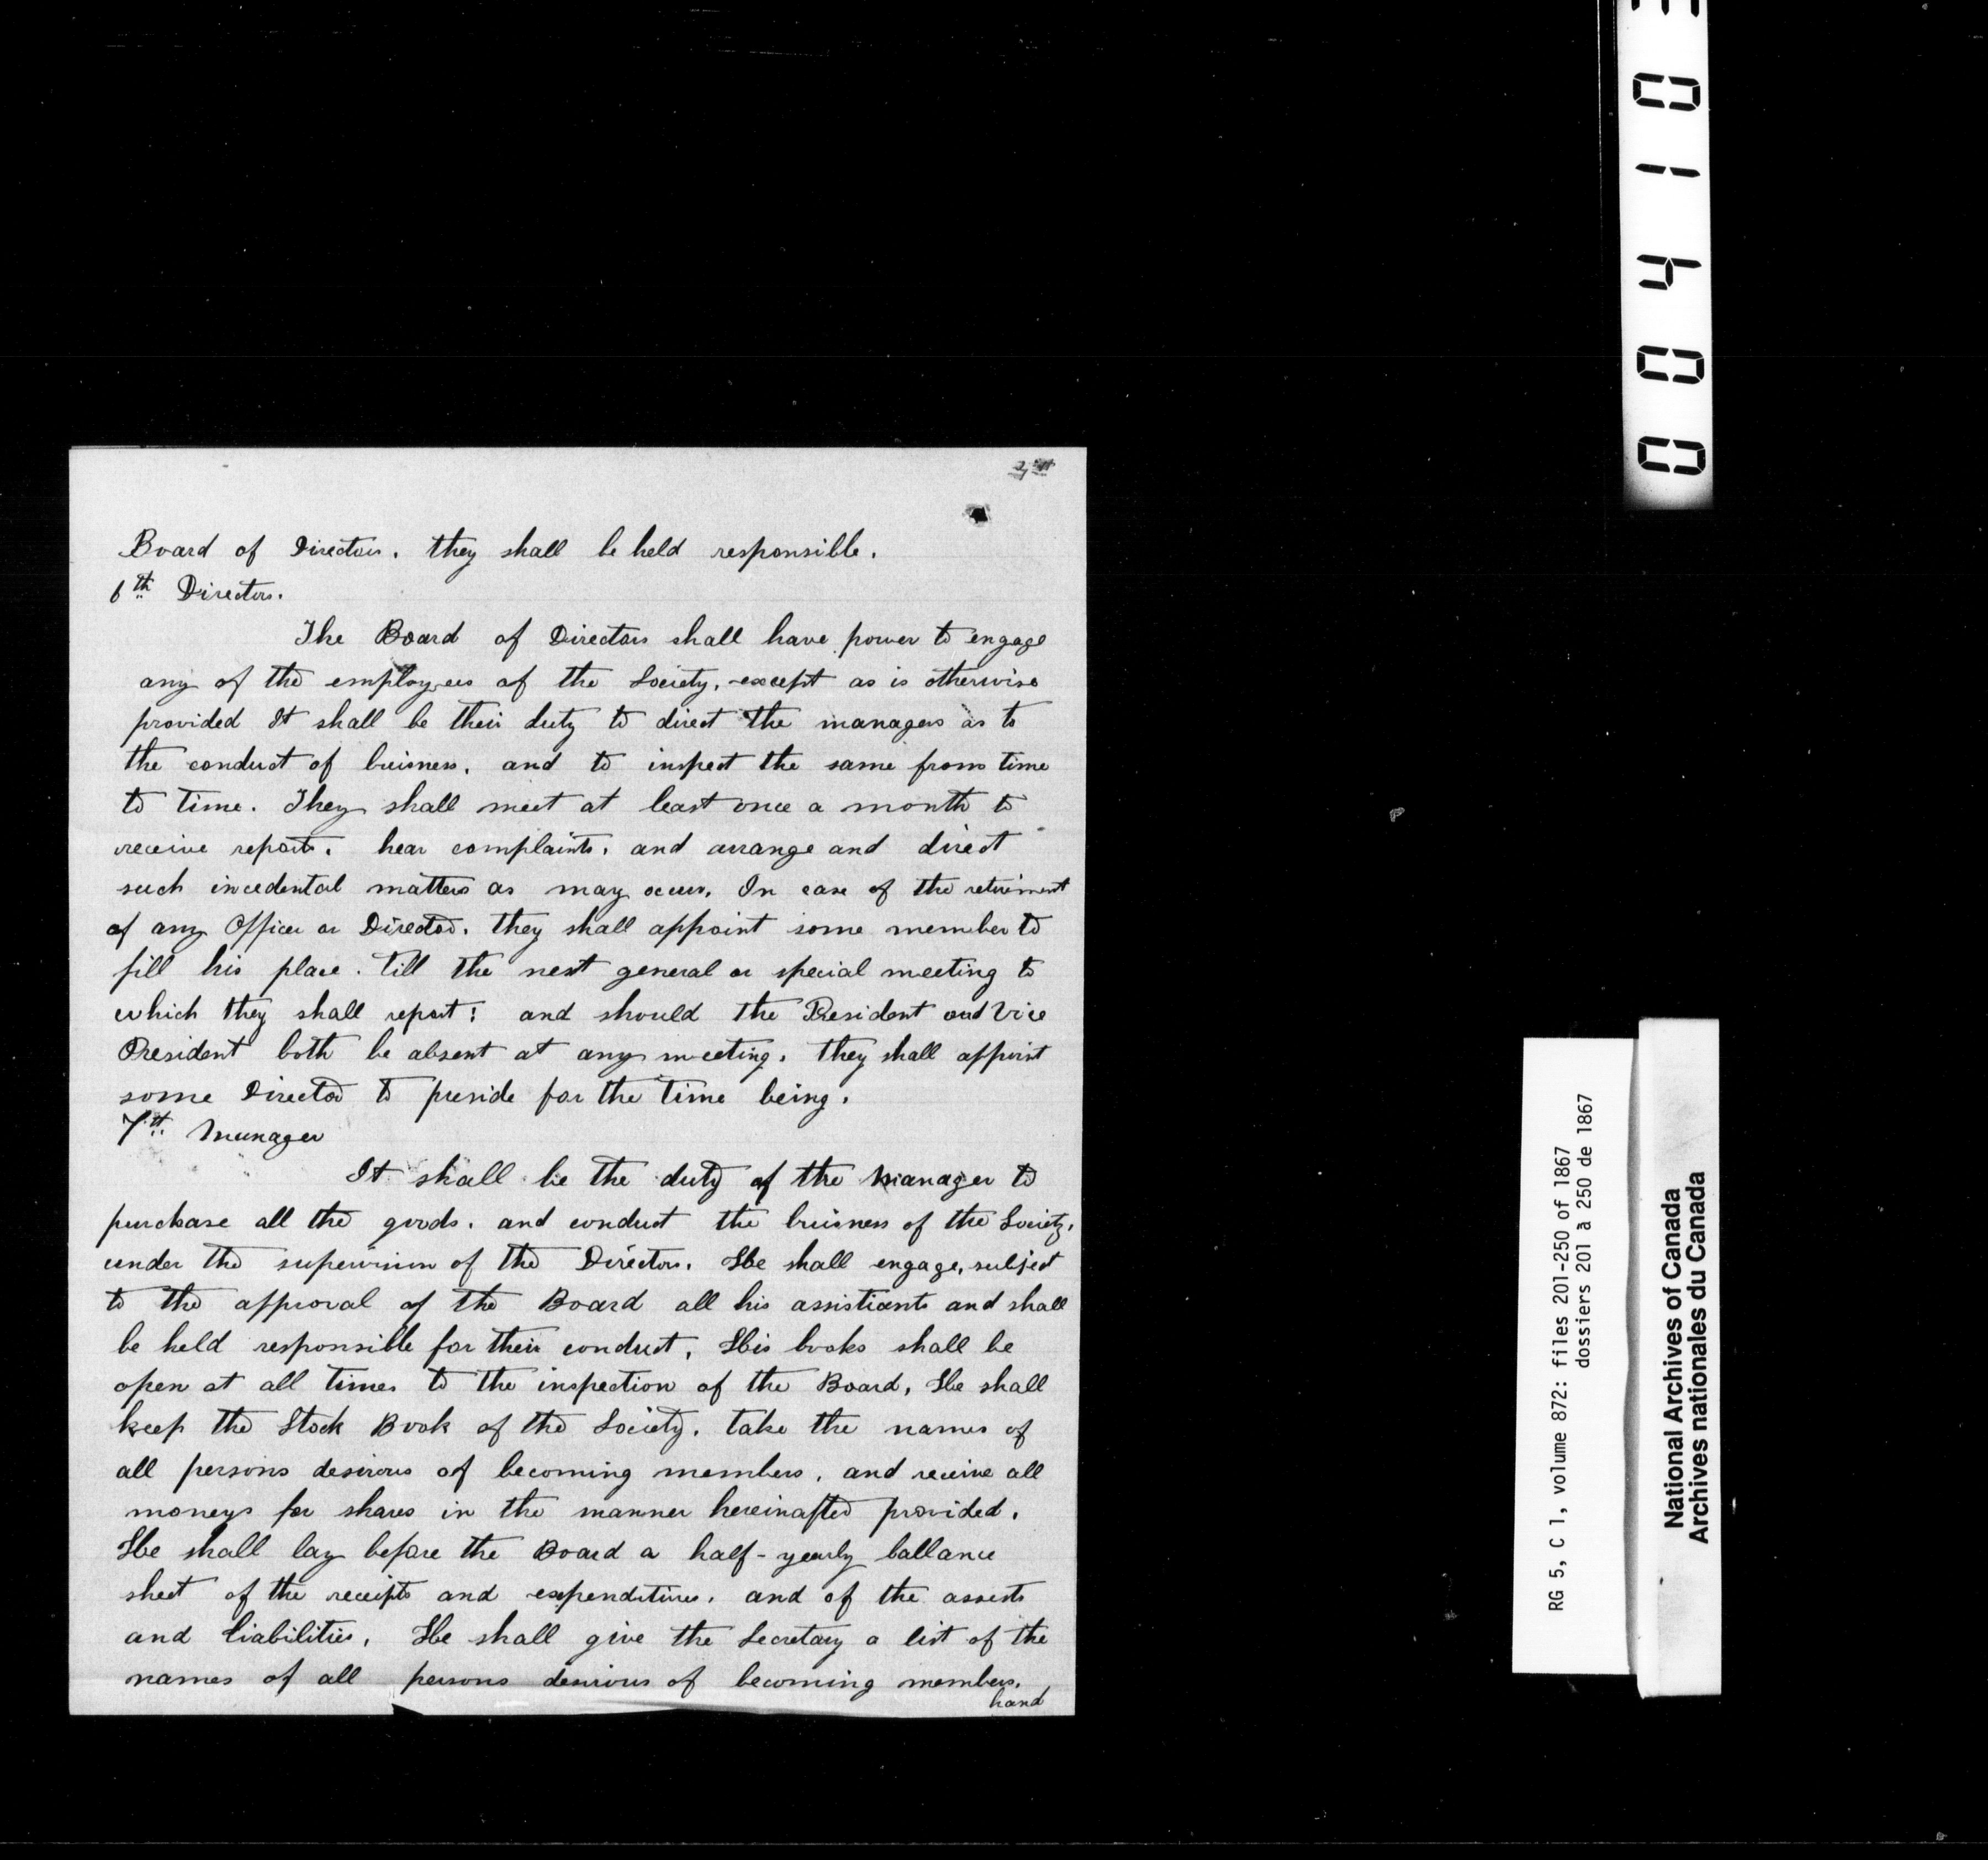 Board of Directors. they shall be held responsible.
6th Directors.
The Board of Directors shall have power to engage
any of the employees of the Society, except as is otherwise
provided It shall be their duty to direct the managers as to
the conduct of buisness. and to inspect the same from time
to time. They shall meet at least once a month to
receive reports. hear complaints. and arrange and direct
such incedental matters as may occur. In case of the retirement
of any Officer or Director. they shall appoint some member to
fill his place. till the next general or special meeting to
which they shall report; and should the President and Vice
President both be absent at any meeting. they shall appoint
some Director to preside for the time being.
7th Manager
It shall be the duty of the Manager to
purchase all the goods. and conduct the buisness of the Society,
under the supervision of the Directors. He shall engage, subject
to the approval of the Board all his assistants and shall
be held responsible for their conduct. His books shall be
open at all times to the inspection of the Board, He shall
keep the Stock Book of the Society. take the names of
all persons desirous of becoming members. and receive all
moneys for shares in the manner hereinafter provided.
He shall lay before the Board a half-yearly ballance
sheet of the receipts and expenditures. and of the assests
and liabilities. He shall give the Secretary a list of the
names of all persons desirous of becoming members.
hand
0 0 4 1 0 3
RG 5, C 1, volume 872: files 201-250 of 1867
dossiers 201 à 250 de 1867
National Archives of Canada
Archives nationales du Canada